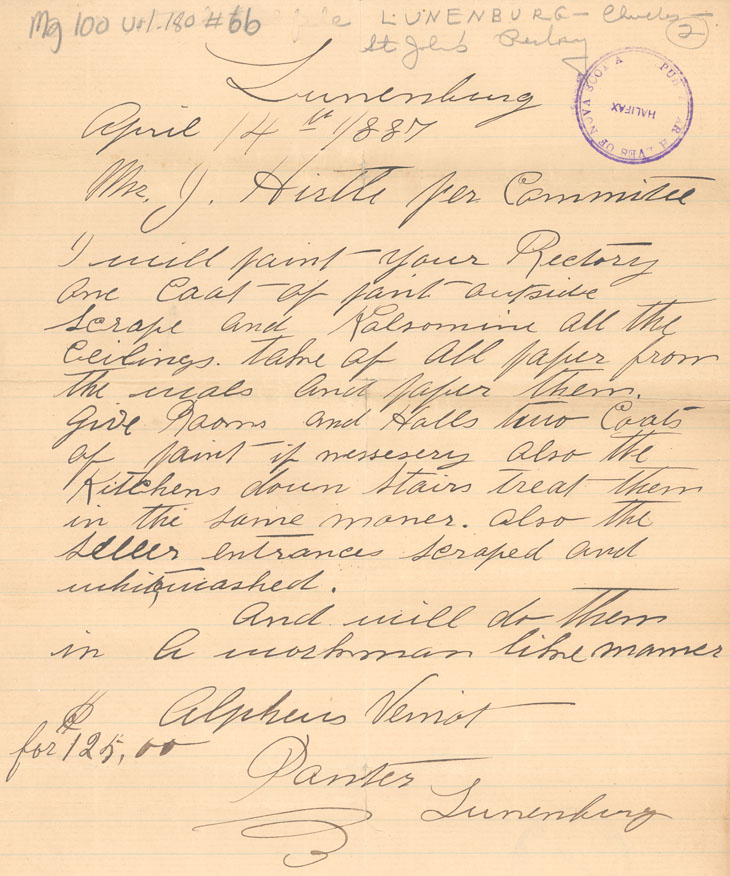 Mg 100 Vol. 180 #66
LUNENBURG - Churches
2
St John's Rectory
PUBLIC ARCHIVES OF NOVA SCOTIA
HALIFAX
Lunenburg
April 14th 1887
Mr. J. Hirtle per Committee
I will paint your Rectory
one Coat of pant outside
Scrape and Kalsomine all the
Ceilings. take of all paper from
the wals and paper them.
Give Rooms and Halls two Coats
of paint if nessesery also the
Kitchens down Stairs treat them
in the same maner. also the
Seller entrances scraped and
whitwashed.
And will do them
in A workman like manner
Alpheus Veniot
for $125,00
Panter
Lunenburg